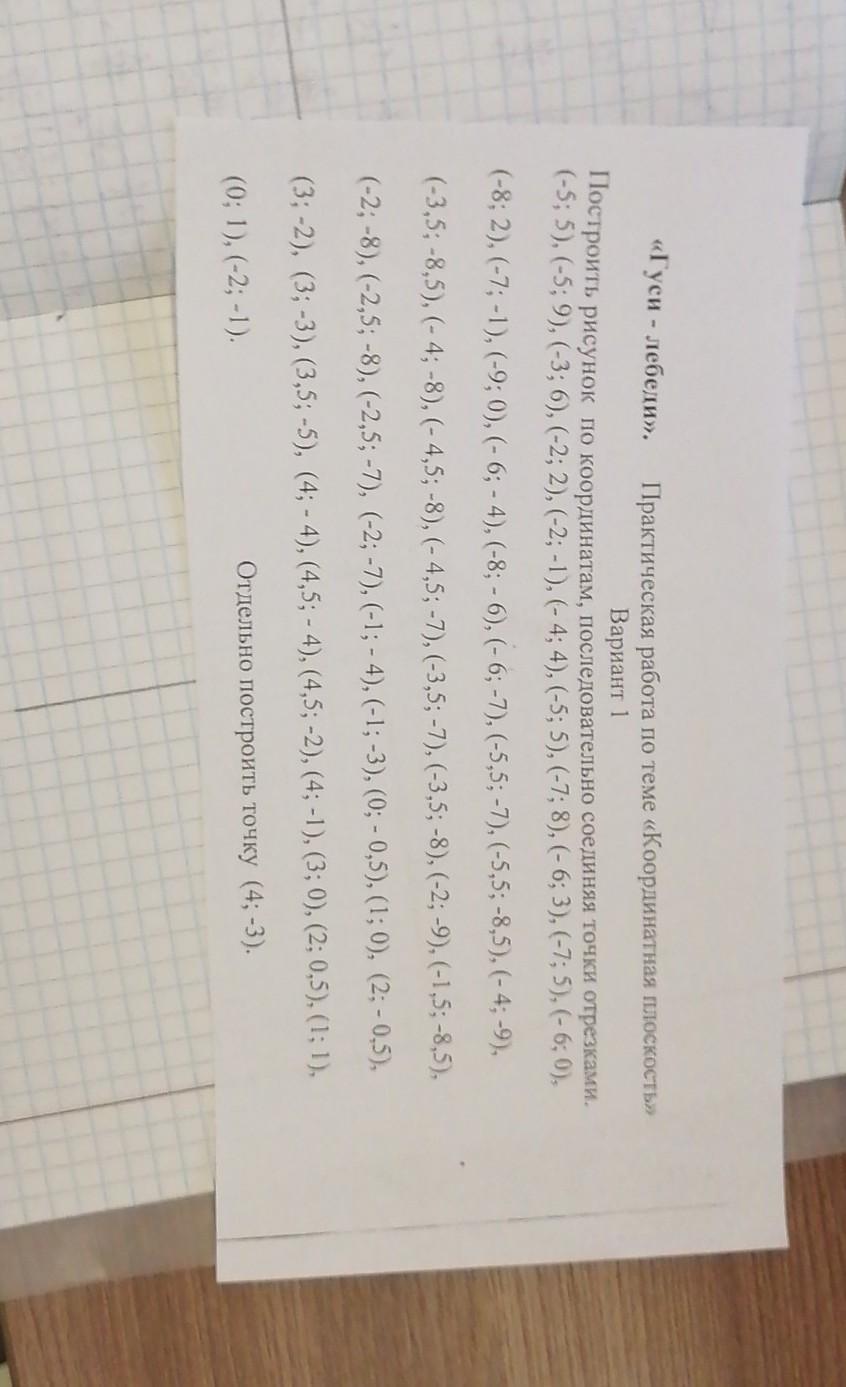 «Гуси - лебеди». Практическая работа по теме «Координатная плоскость»
Вариант 1
Построить рисунок по координатам, последовательно соединяя точки отрезками.
(-5; 5), (-5; 9), (-3; 6), (-2; 2), (-2; -1), (- 4; 4), (-5; 5), (-7; 8), (- 6; 3), (-7; 5), (- 6; 0),
(-8; 2), (-7; -1), (-9; 0), (- 6; - 4), (-8; - 6), (- 6; -7), (-5,5; -7), (-5,5; -8,5), (- 4; -9),
(-3,5; -8,5), (- 4; -8), (- 4,5; -8), (- 4,5; -7), (-3,5; -7), (-3,5; -8), (-2; -9), (-1,5; -8,5),
(-2; -8), (-2,5; -8), (-2,5; -7), (-2; -7), (-1; - 4), (-1; -3), (0; - 0,5), (1; 0), (2; - 0,5),
(3; -2), (3; -3), (3,5; -5), (4; - 4), (4,5; - 4), (4,5; -2), (4; -1), (3; 0), (2; 0,5), (1; 1),
(0; 1), (-2; -1). Отдельно построить точку (4; -3).